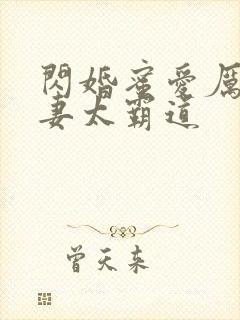 閃婚蜜愛厲
妻太霸道
曾天來